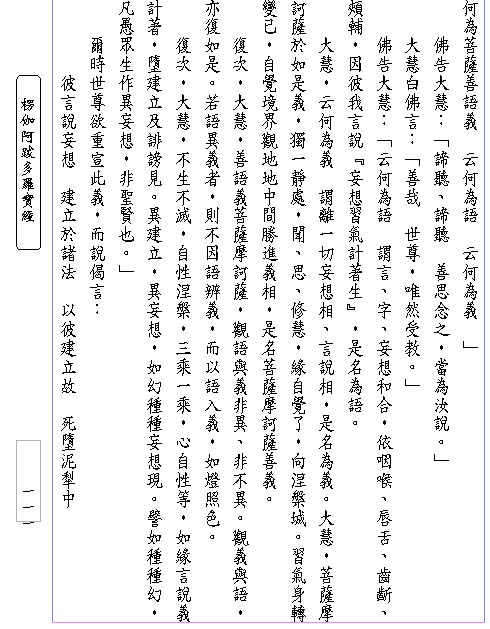 何為菩薩善語義　云何為語　云何為義　」
佛告大慧：「諦聽、諦聽　善思念之，當為汝說。」
大慧白佛言：「善哉　世尊，唯然受教。」
佛告大慧：「云何為語　謂言、字、妄想和合，依咽喉、唇舌、齒齗、
頰輔，因彼我言說『妄想習氣計著生』，是名為語。
大慧，云何為義　謂離一切妄想相、言說相，是名為義。大慧，菩薩摩
訶薩於如是義，獨一靜處，聞、思、修慧，緣自覺了，向涅槃城。習氣身轉
變已，自覺境界觀地地中間勝進義相，是名菩薩摩訶薩善義。
復次，大慧，善語義菩薩摩訶薩，觀語與義非異、非不異。觀義與語，
亦復如是。若語異義者，則不因語辨義，而以語入義，如燈照色。
復次，大慧，不生不滅，自性涅槃，三乘一乘，心自性等，如緣言說義
計著，墮建立及誹謗見。異建立，異妄想，如幻種種妄想現。譬如種種幻，
凡愚眾生作異妄想，非聖賢也。」
爾時世尊欲重宣此義，而說偈言：
彼言說妄想　建立於諸法　以彼建立故　死墮泥犁中
楞伽阿跋多羅寶經
一一一